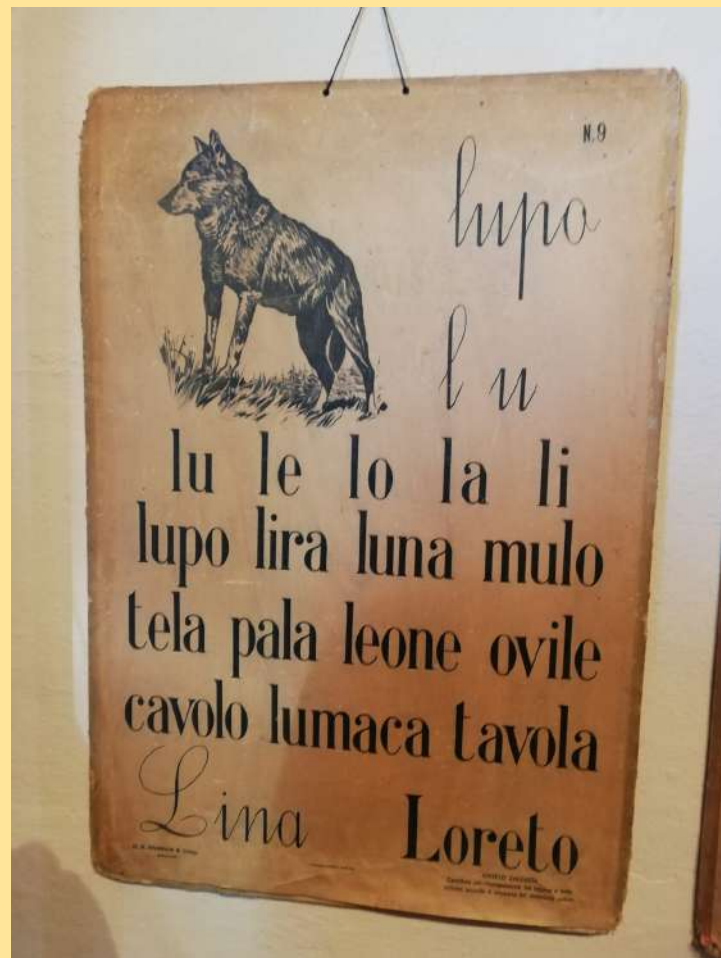 N.9
lupo
l u
lu le lo la li
lupo lira luna mulo
tela pala leone ovile
cavolo lumaca tavola
Lina Loreto